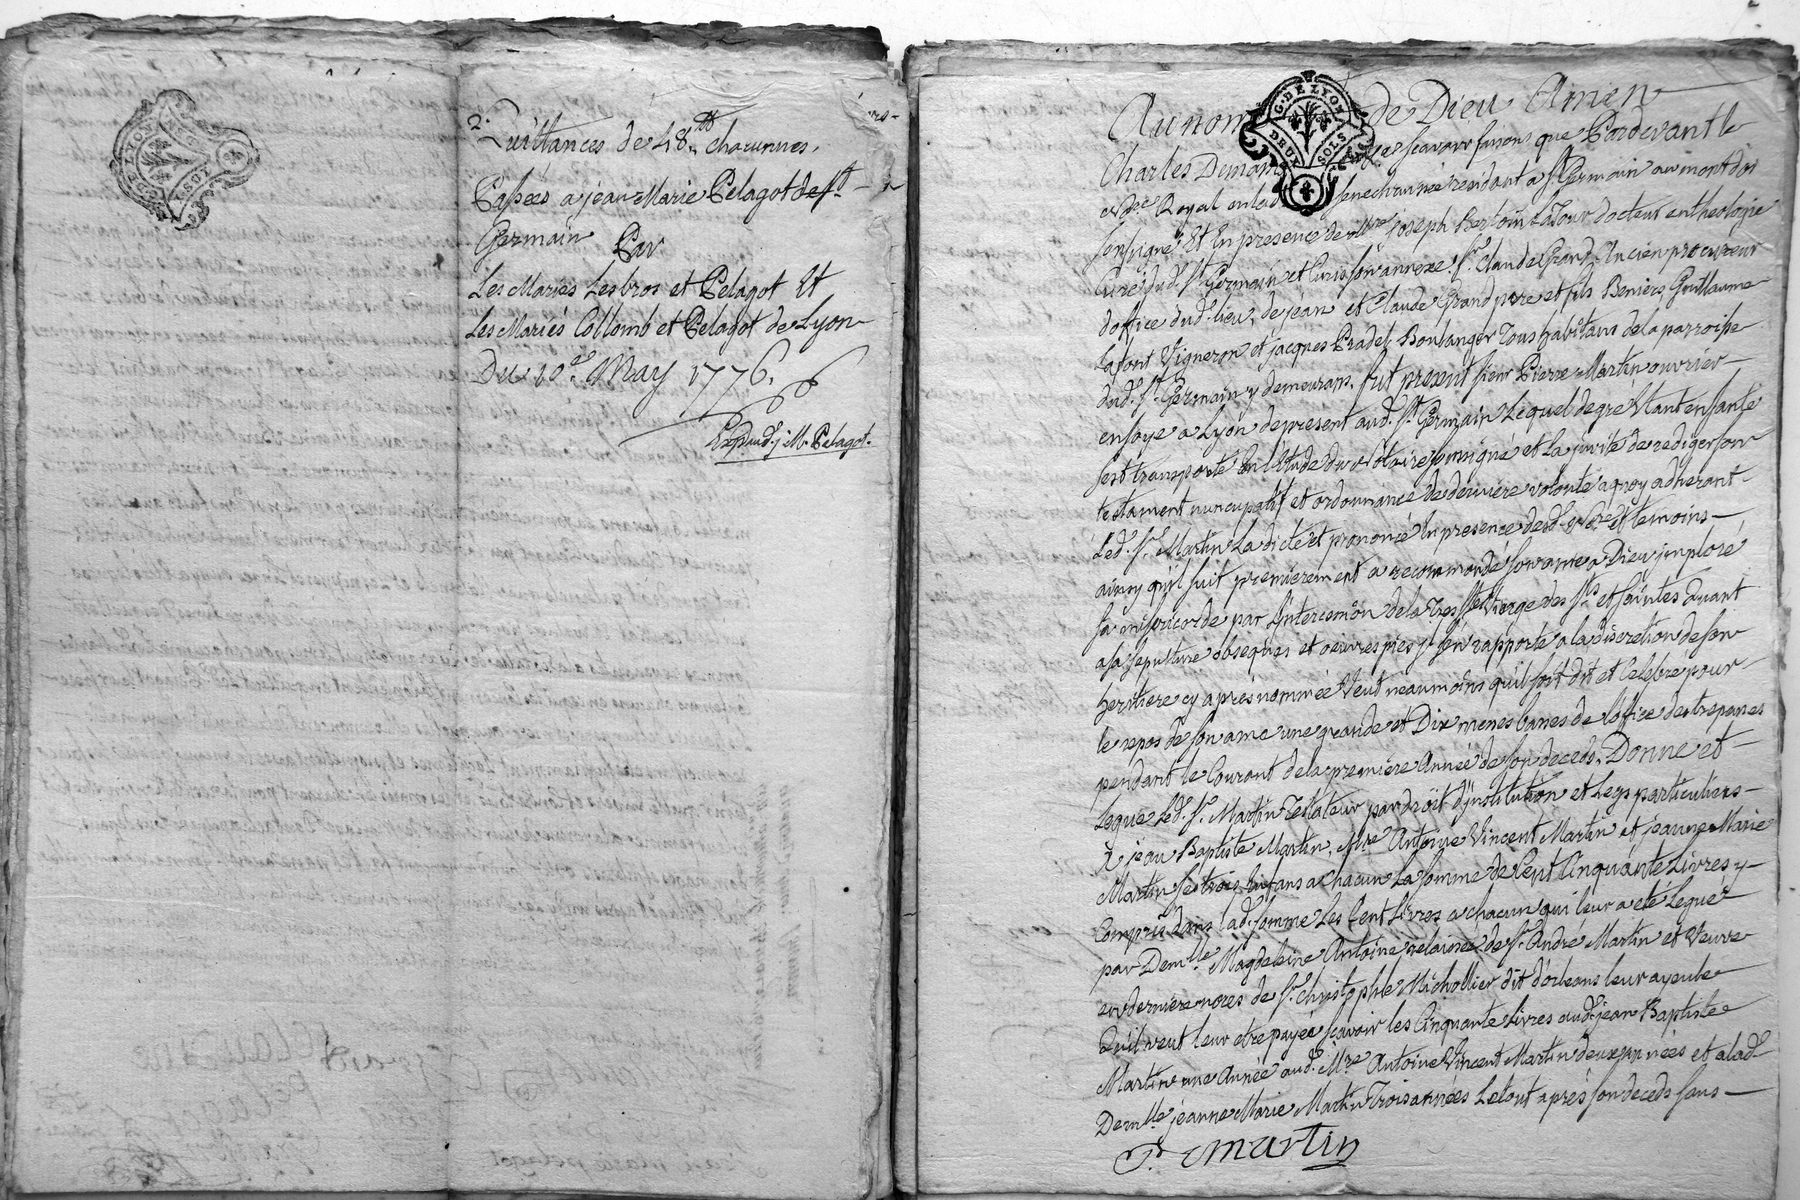 G. DE LYON
DEUX SOLS
2.
Quittances de 48.ᵗᵗ chacunnes,
Passées a jean Marie Pelagot de Sᵗ.
Germain Par
Les Mariés Lesbros et Pelagot Et
Les Mariés Collomb et Pelagot de Lyon
Du 10ᵉ. May 1776.
Exp. aud. j. M. Pelagot.
G. DE LYON
DEUX SOLS
Au nom de Dieu Amen
Charles Dimans scavoir faisons que Pardevant le
Nore Royal en lad Senechaussée residant a St Germain au mont d'or
soussigné Et En presence de Mre Joseph Bertoin Latour docteur en theologie
Curé dud. St. Germain et Curis son annexe, Sr. Claude Grand, Ancien procureur
doffice dud. lieu, de jean et Claude Grand pere et fils Beniers, Guillaume
Lafont Vigneron et jacques Pradel Boulanger Tous habitans de la parroisse
dud. St. Germain y demeurans, fut present sieur Pierre Martin ouvrier
en soye a Lyon de present aud. St. Germain Lequel de gré Etant en santé
sest transporté En l'Etude du Notaire soussigné et La invité de rediger son
testament nuncupatif et ordonnance de derniere volonté a quoy adherant
Led. Sr. Martin La dicté et prononcé En presence desd. Nore et temoins
ainsy qu'il suit premierement a recommandé son ame a Dieu imploré
sa misericorde par l'intercession de la Tres Ste Vierge des Sts et saintes Quant
a sa sepulture obseques et oeuvres pies il s'en rapporte a la discretion de son
heritiere cy après nommée Veut neanmoins qu'il soit dit et celebré pour
le repos de son ame une grande et Dix messes basses de l'office des trepassés
pendant le Courant de la premiere Année de son decedz. Donne et
Legue Led. Sr. Martin Testateur par droit d'institution et Legs particuliers
à jean Baptiste Martin, Mre Antoine Vincent Martin et jeanne Marie
Martin ses trois Enfans a chacun La somme de Cent Cinquante Livres y
Compris dans lad. somme Les Cent Livres a chacun qui leur a été Legué
par Demlle Magdeleine Antoine relaissée de Sr. André Martin et Veuve
en derniere noces de Sr. Christophle Michollier dit d'orleans leur ayeule
Quil veut leur etre payée scavoir les Cinquante Livres aud. jean Baptiste
Martin une Année aud. Mre Antoine Vincent Martin deux années et a lad.
Demlle jeanne Marie Martin Trois années Le tout après son decedz sans
P. Martin